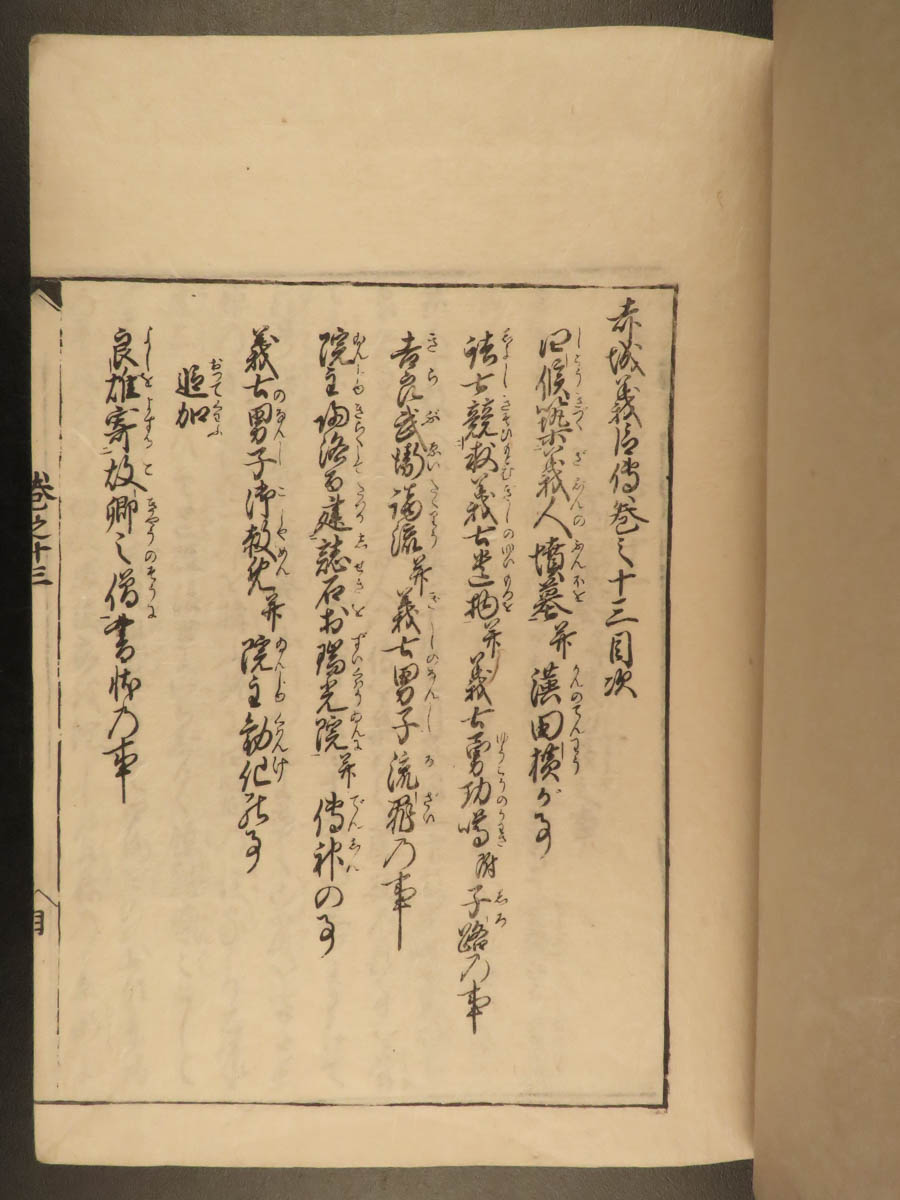 赤城義臣傳巻之十三目次
四侯築義人墳墓并漢田横がヿ
諸士競求義士遺物并義士勇功噂附子路乃事
吉良武衛謫流并義士男子流罪乃事
院主歸洛而建誌石於瑞光院并傳神のヿ
義士男子御赦免并院主勧化状のヿ
追加
良雄寄故卿之僧書状乃事
巻之十三
目